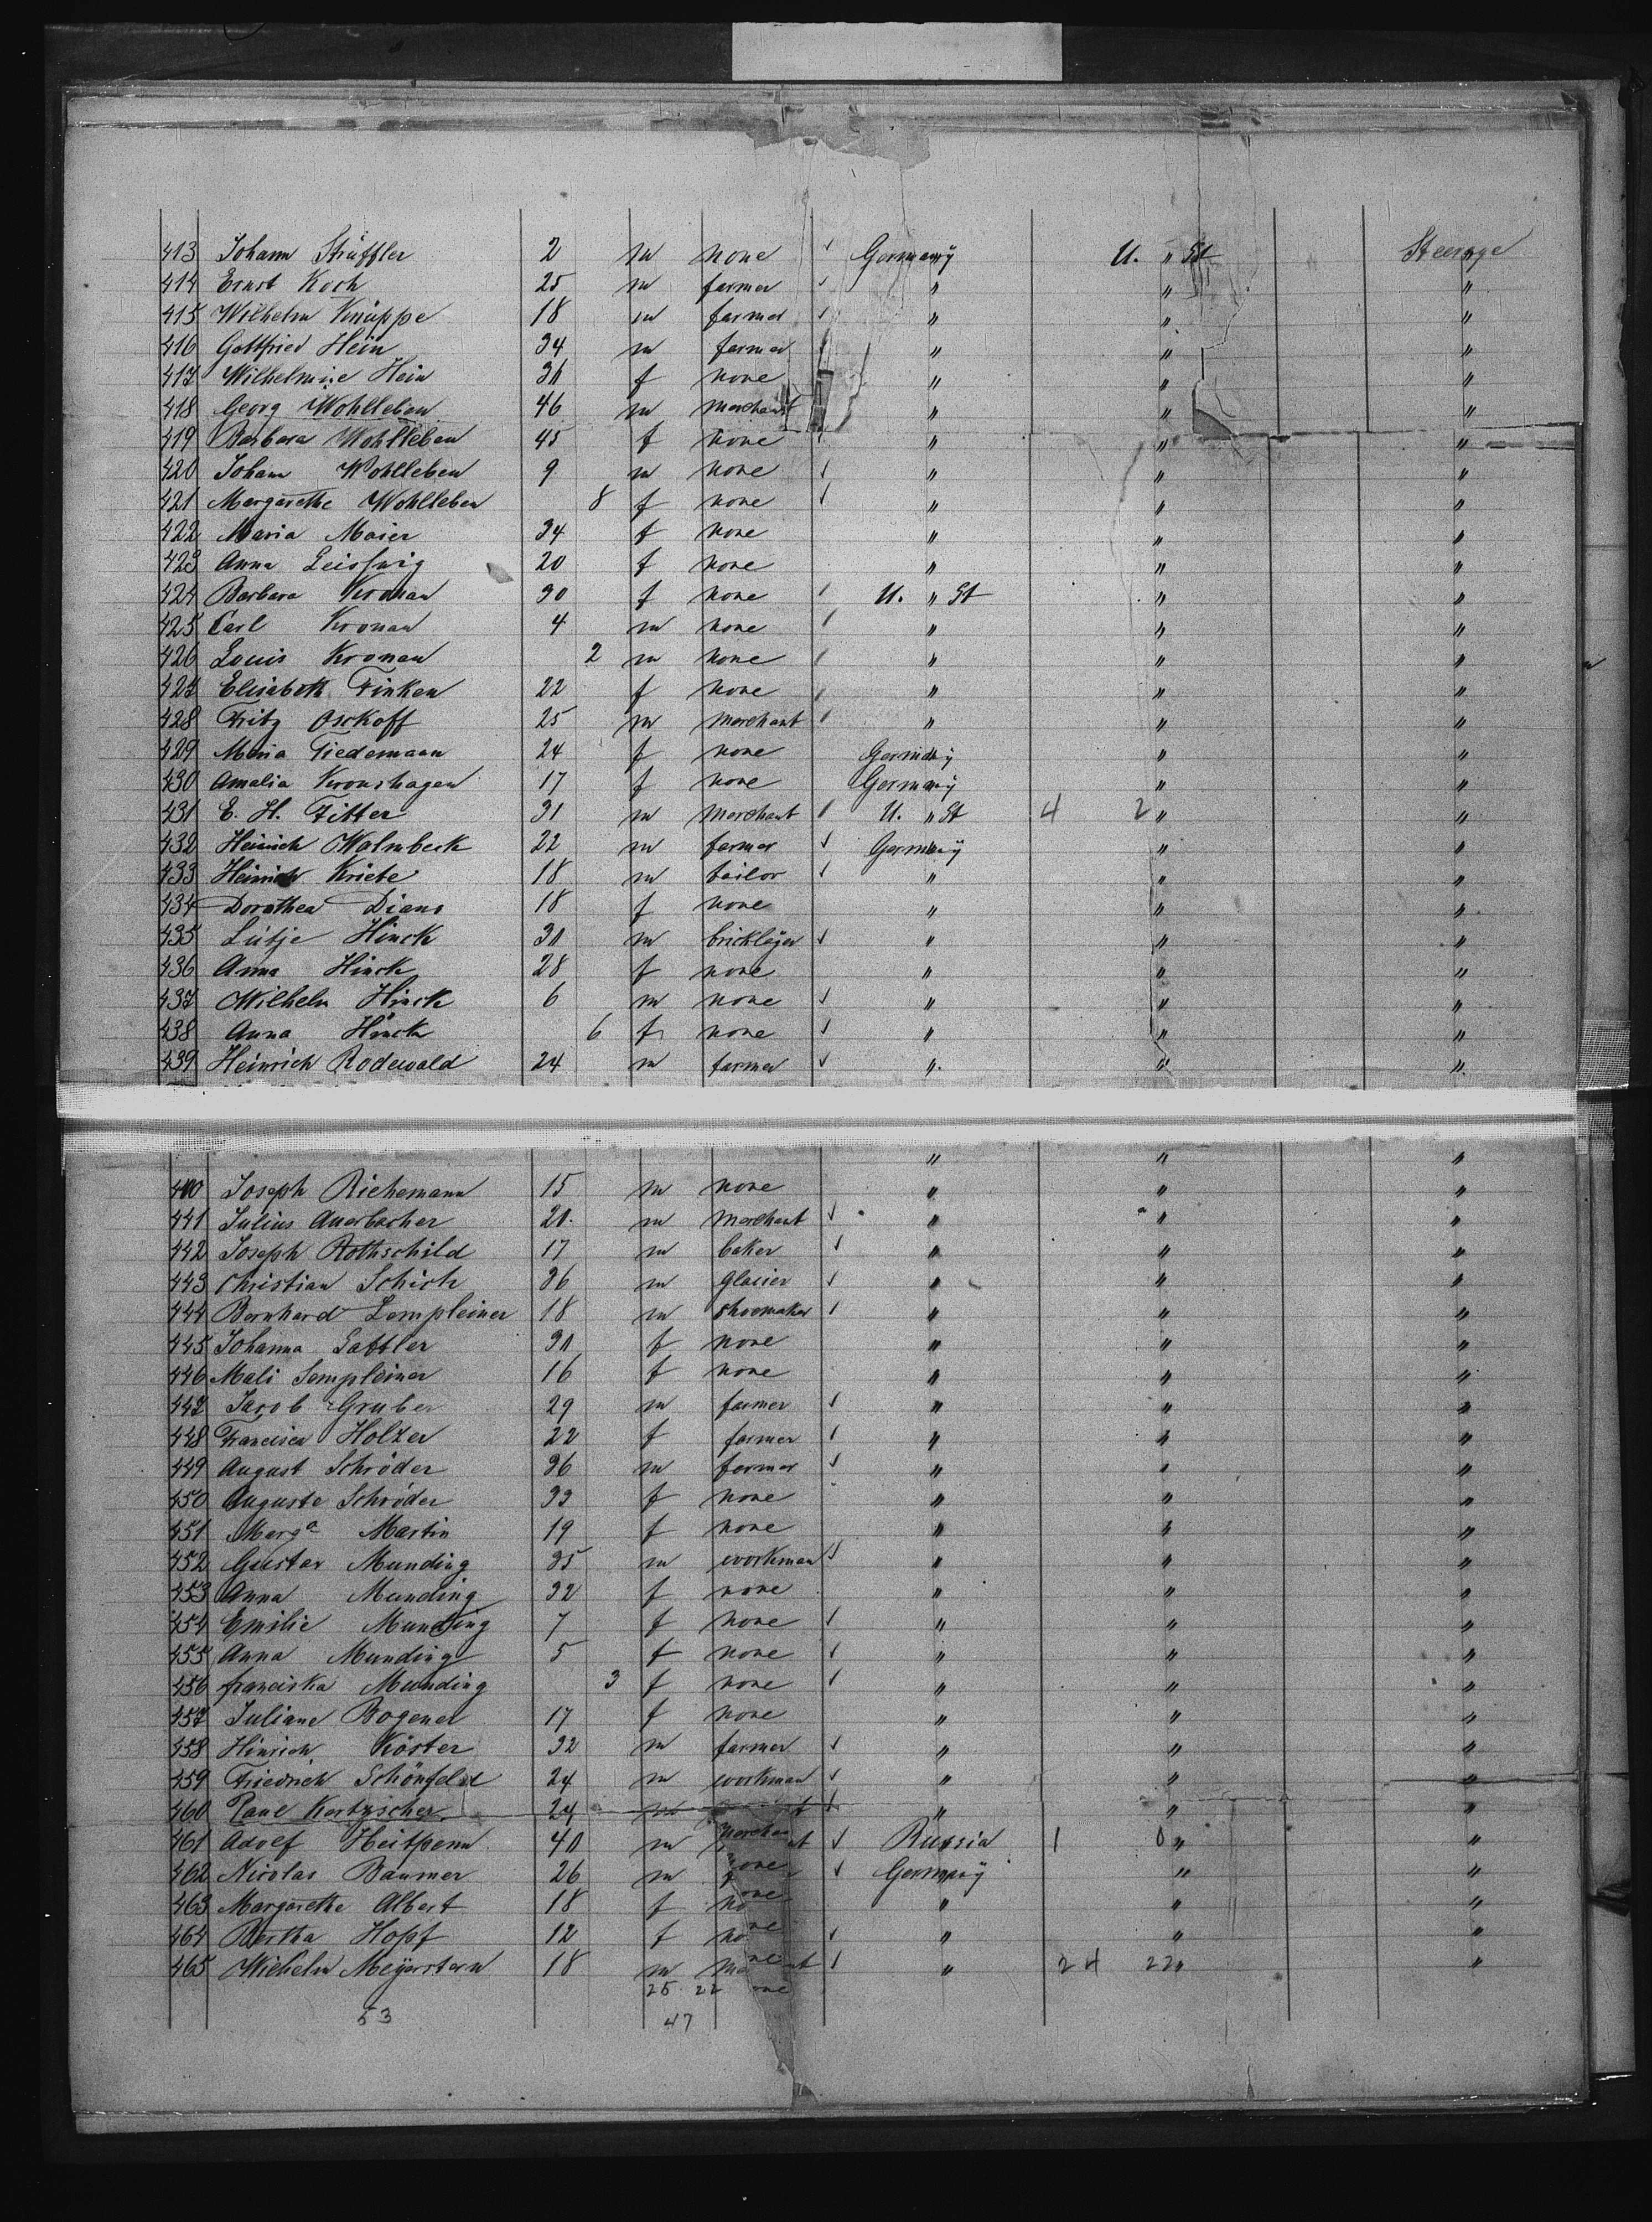 413 Johann Strüffler 2 m none Germany U. " St Steerage
414 Ernst Koch 25 m farmer " " "
415 Wilhelm Knüppe 18 m farmer " " "
416 Gottfried Hein 34 m farmer " " "
417 Wilhelmine Hein 30 f none " " "
418 Georg Wohlleben 46 m merchant " " "
419 Barbara Wohlleben 45 f none " " "
420 Johann Wohlleben 9 m none " " "
421 Margarethe Wohlleben 8 f none " " "
422 Maria Maier 34 f none " " "
423 Anna 20 f none " " "
424 Barbara Kronau 30 f none U. " St " "
425 Carl Kronau 4 m none " " "
426 Louis Kronau 2 m none " " "
427 Elisabeth Finken 22 f none " " "
428 Fritz Osthoff 25 m merchant " " "
429 Maria Tiedemann 24 f none Germany " "
430 Amalia Kronshagen 17 f none Germany " "
431 E. H. Fitter 31 m merchant U. " St 4 2 " "
432 Heinrich Walmbeck 22 m farmer Germany " "
433 Heinrich Kriete 18 m tailor " " "
434 Dorothea Diano 18 f none " " "
435 Lütje Hinck 30 m bricklayer " " "
436 Anna Hinck 28 f none " " "
437 Wilhelm Hinck 6 m none " " "
438 Anna Hinck 6 f none " " "
439 Heinrich Rodewald 24 m farmer " " "
" " "
440 Joseph Riehemann 15 m none " " "
441 Julius Auerbacher 20 m merchant " " "
442 Joseph Rothschild 17 m baker " " "
443 Christian Schich 36 m glacier " " "
444 Bernhard Lempleiner 18 m shoemaker " " "
445 Johanna Sattler 30 f none " " "
446 Mali Lempleiner 16 f none " " "
447 Jacob Gruber 29 m farmer " " "
448 Francisca Holzer 22 f farmer " " "
449 August Schröder 36 m farmer " " "
450 Auguste Schröder 33 f none " " "
451 Marga Martin 19 f none " " "
452 Gustav Munding 35 m workman " " "
453 Anna Munding 32 f none " " "
454 Emilie Munding 7 f none " " "
455 Anna Munding 5 f none " " "
456 Franciska Munding 3 f none " " "
457 Juliane Bogener 17 f none " " "
458 Hinrich Köster 32 m farmer " " "
459 Friedrich Schönfeld 24 m workman " " "
460 Paul Kertzscher 24 m " " "
461 Adolf Heitpenn 40 m merchant Russia 1 0 " "
462 Nicolas Baumer 26 m Germany " "
463 Margarethe Albert 18 f none " " "
464 Bertha Hopf 12 f none " " "
465 Wilhelm Meyerstern 18 m " 24 22 " "
25 22
53 47